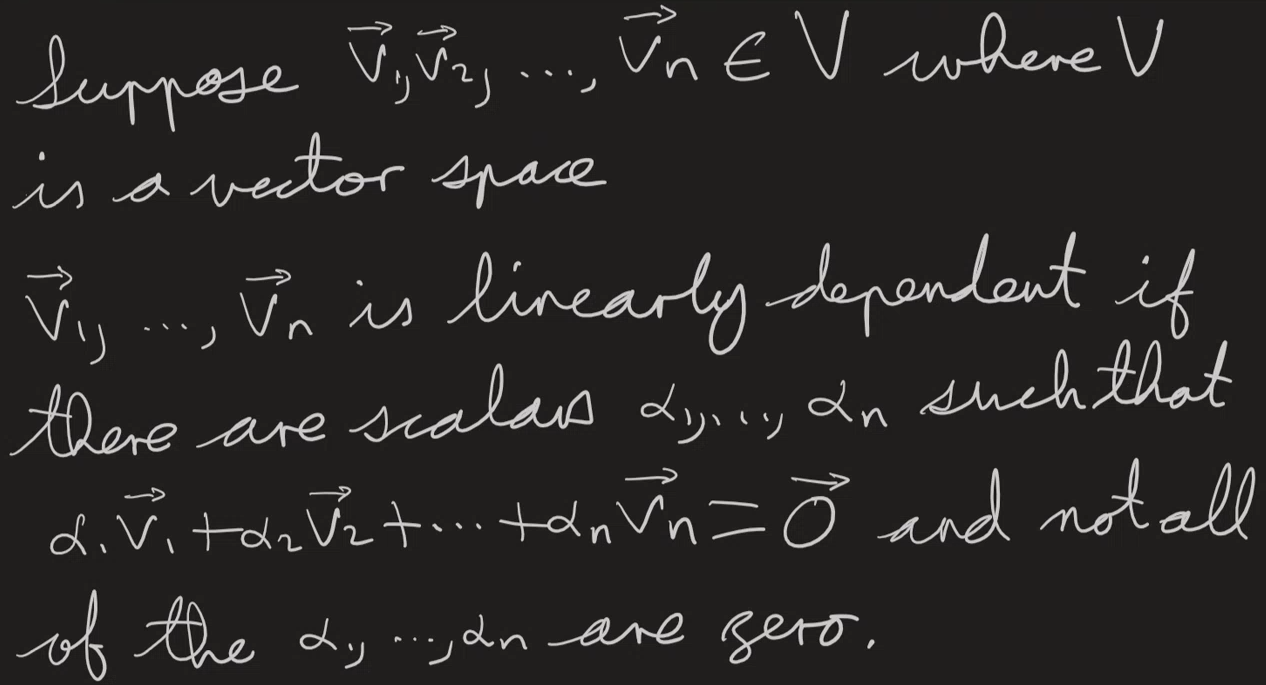 Suppose v⃗₁, v⃗₂, ..., v⃗ₙ ∈ V where V
is a vector space
v⃗₁, ..., v⃗ₙ is linearly dependent if
there are scalars α₁, ..., αₙ such that
α₁v⃗₁ + α₂v⃗₂ + ... + αₙv⃗ₙ = 0⃗ and not all
of the α₁, ..., αₙ are zero.